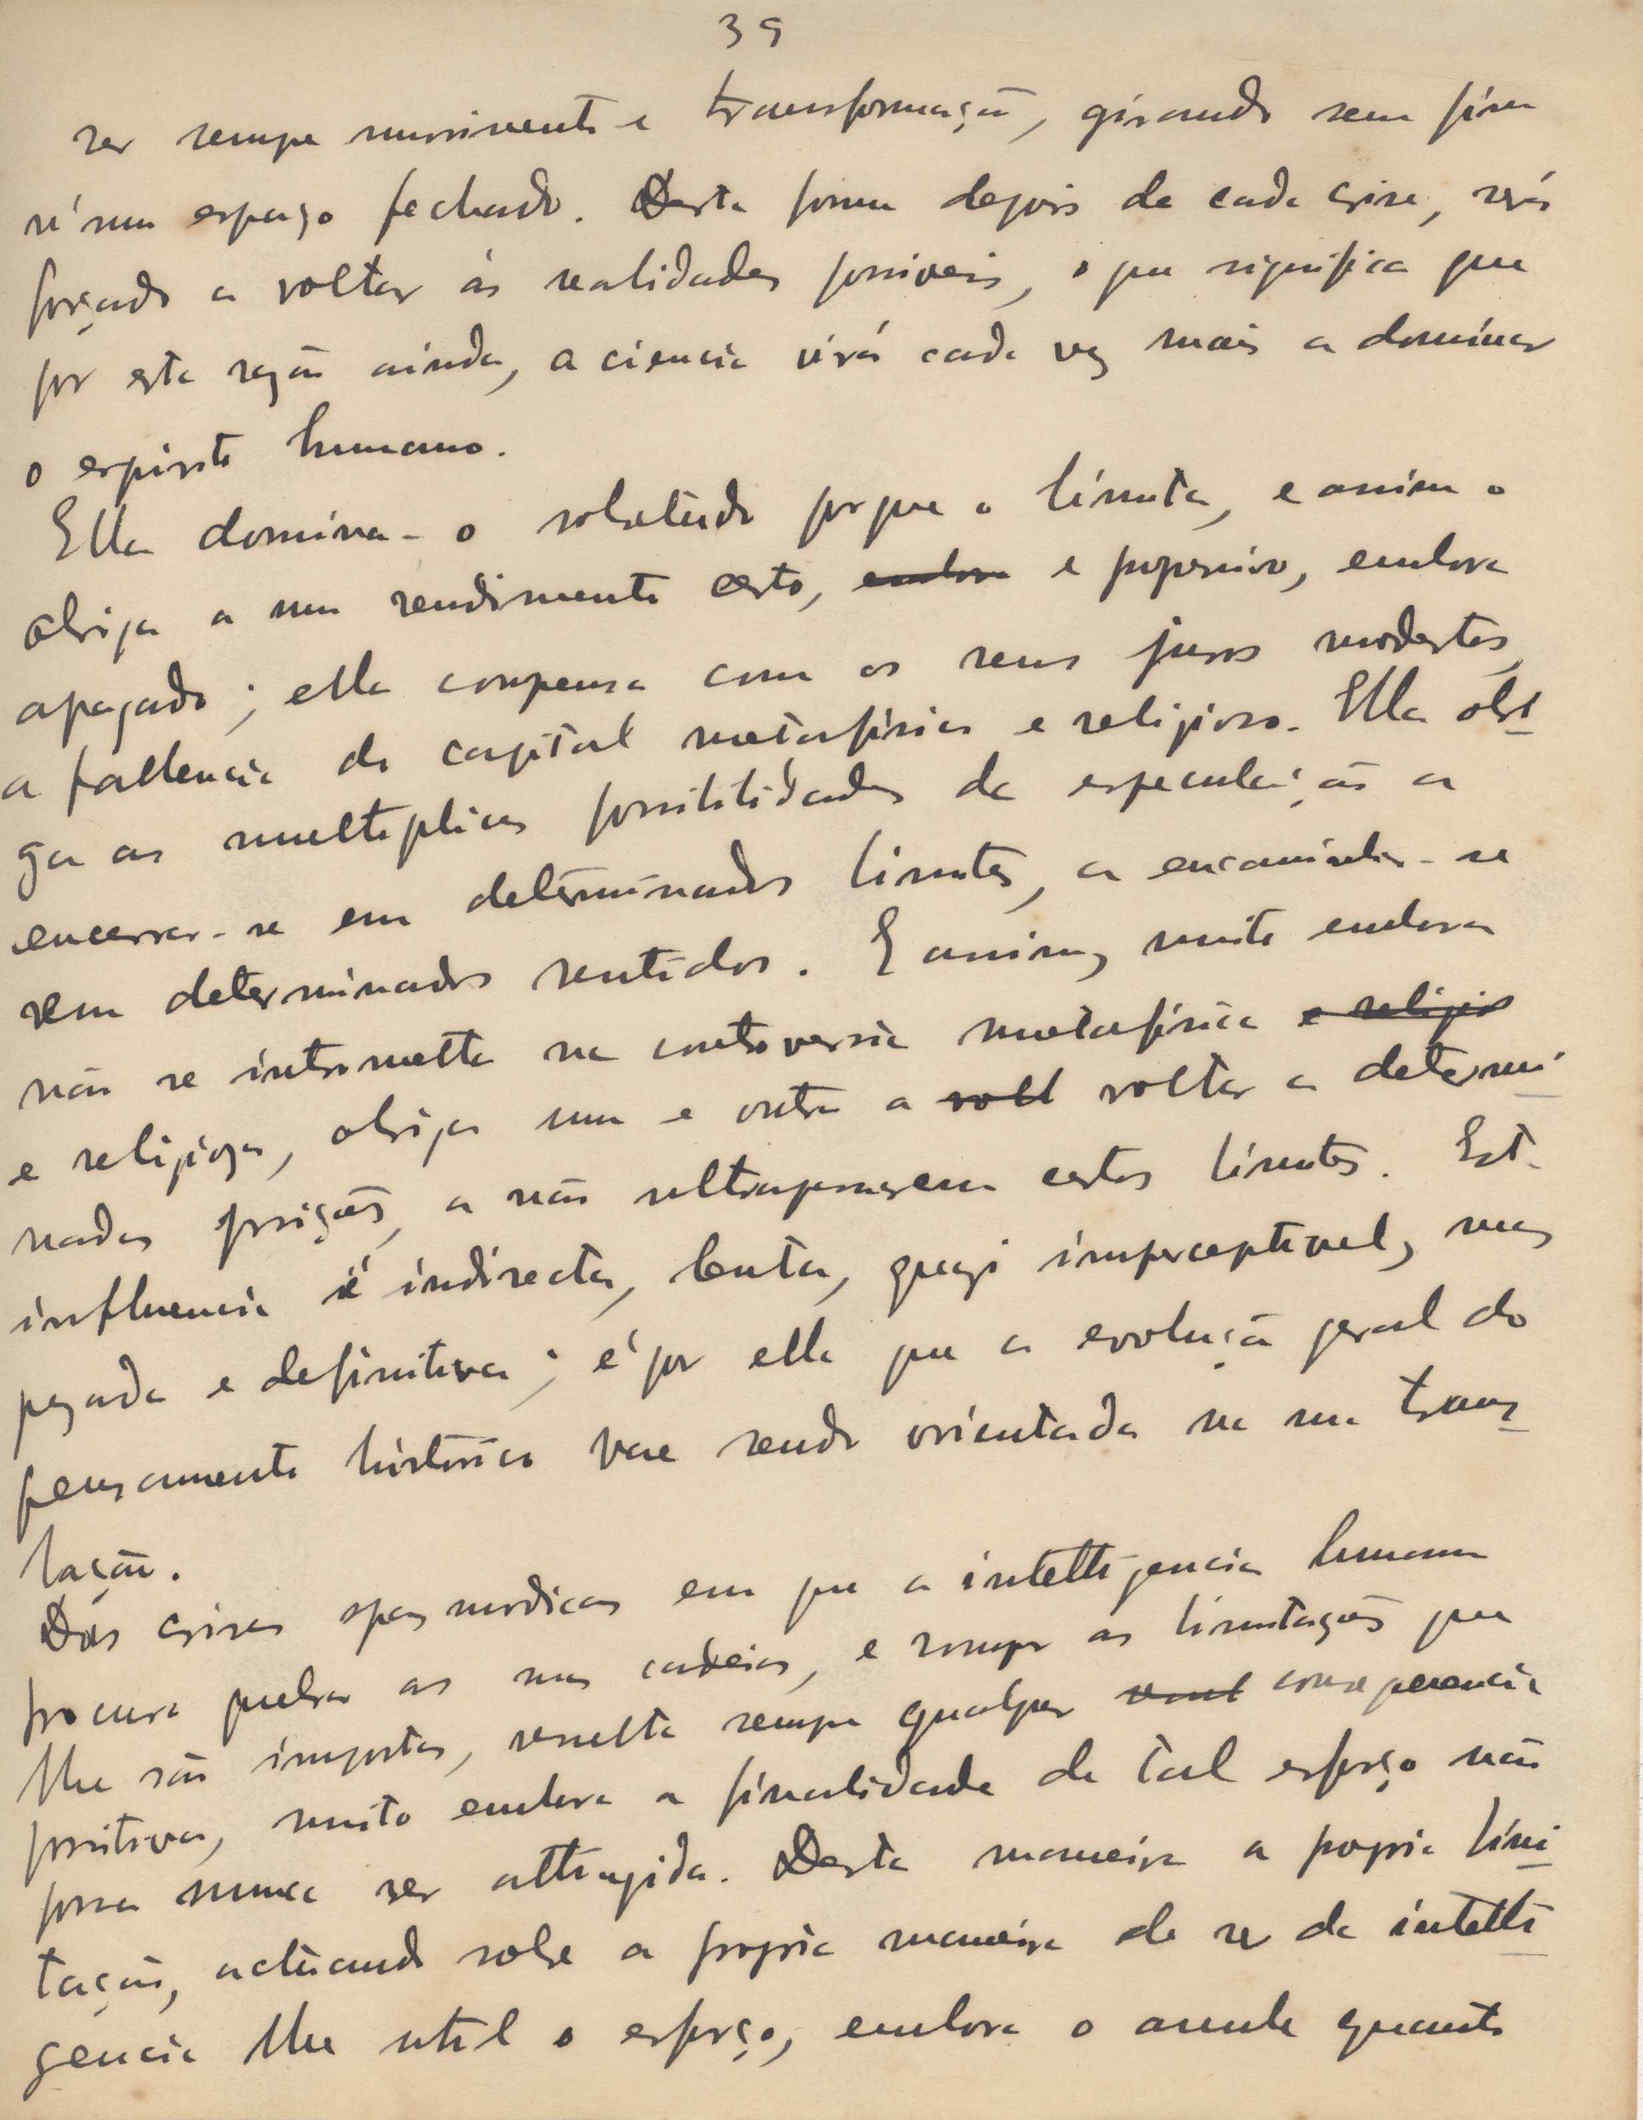 39
ser sempre movimento e transformação, girando sem fim
n'um espaço fechado. Desta forma depois de cada crise, será
forçado a voltar ás realidades possiveis, o que significa que
por esta razão ainda, a ciencia virá cada vez mais a dominar
o espirito humano.
Ella domina-o sobretudo porque o limita, e assim o
obriga a um rendimento certo, embora e progressivo, embora
apagado; ella compensa com os seus juros modestos,
a fallencia do capital metafisico e religioso. Ella obri
ga as multiplices possibilidades da especulação a
encerrar-se em determinados limites, a encaminhar-se
em determinados sentidos. E assim, muito embora
não se intrometta na controversia metafísica e religio
e religiosa, obriga uma e outra a volt voltar a determi
nadas posições, a não ultrapassarem certos limites. Est.
influencia é indirecta, lenta, quazi imperceptivel, mas
pezada e definitiva; é por ella que a evolução geral do
pensamento historico vae sendo orientada na sua trans
lação.
Das crises spasmodicas em que a intelligencia humana
procura quebrar as suas cadeias, e romper as limitações que
lhe são impostas, resulta sempre qualquer consequencia
positiva, muito embora a finalidade de tal esforço não
possa nunca ser attingida. Desta maneira a propria limi
tação, actuando sobre a propria maneira de ser da intelli
gencia lhe util o esforço, embora o annule quanto